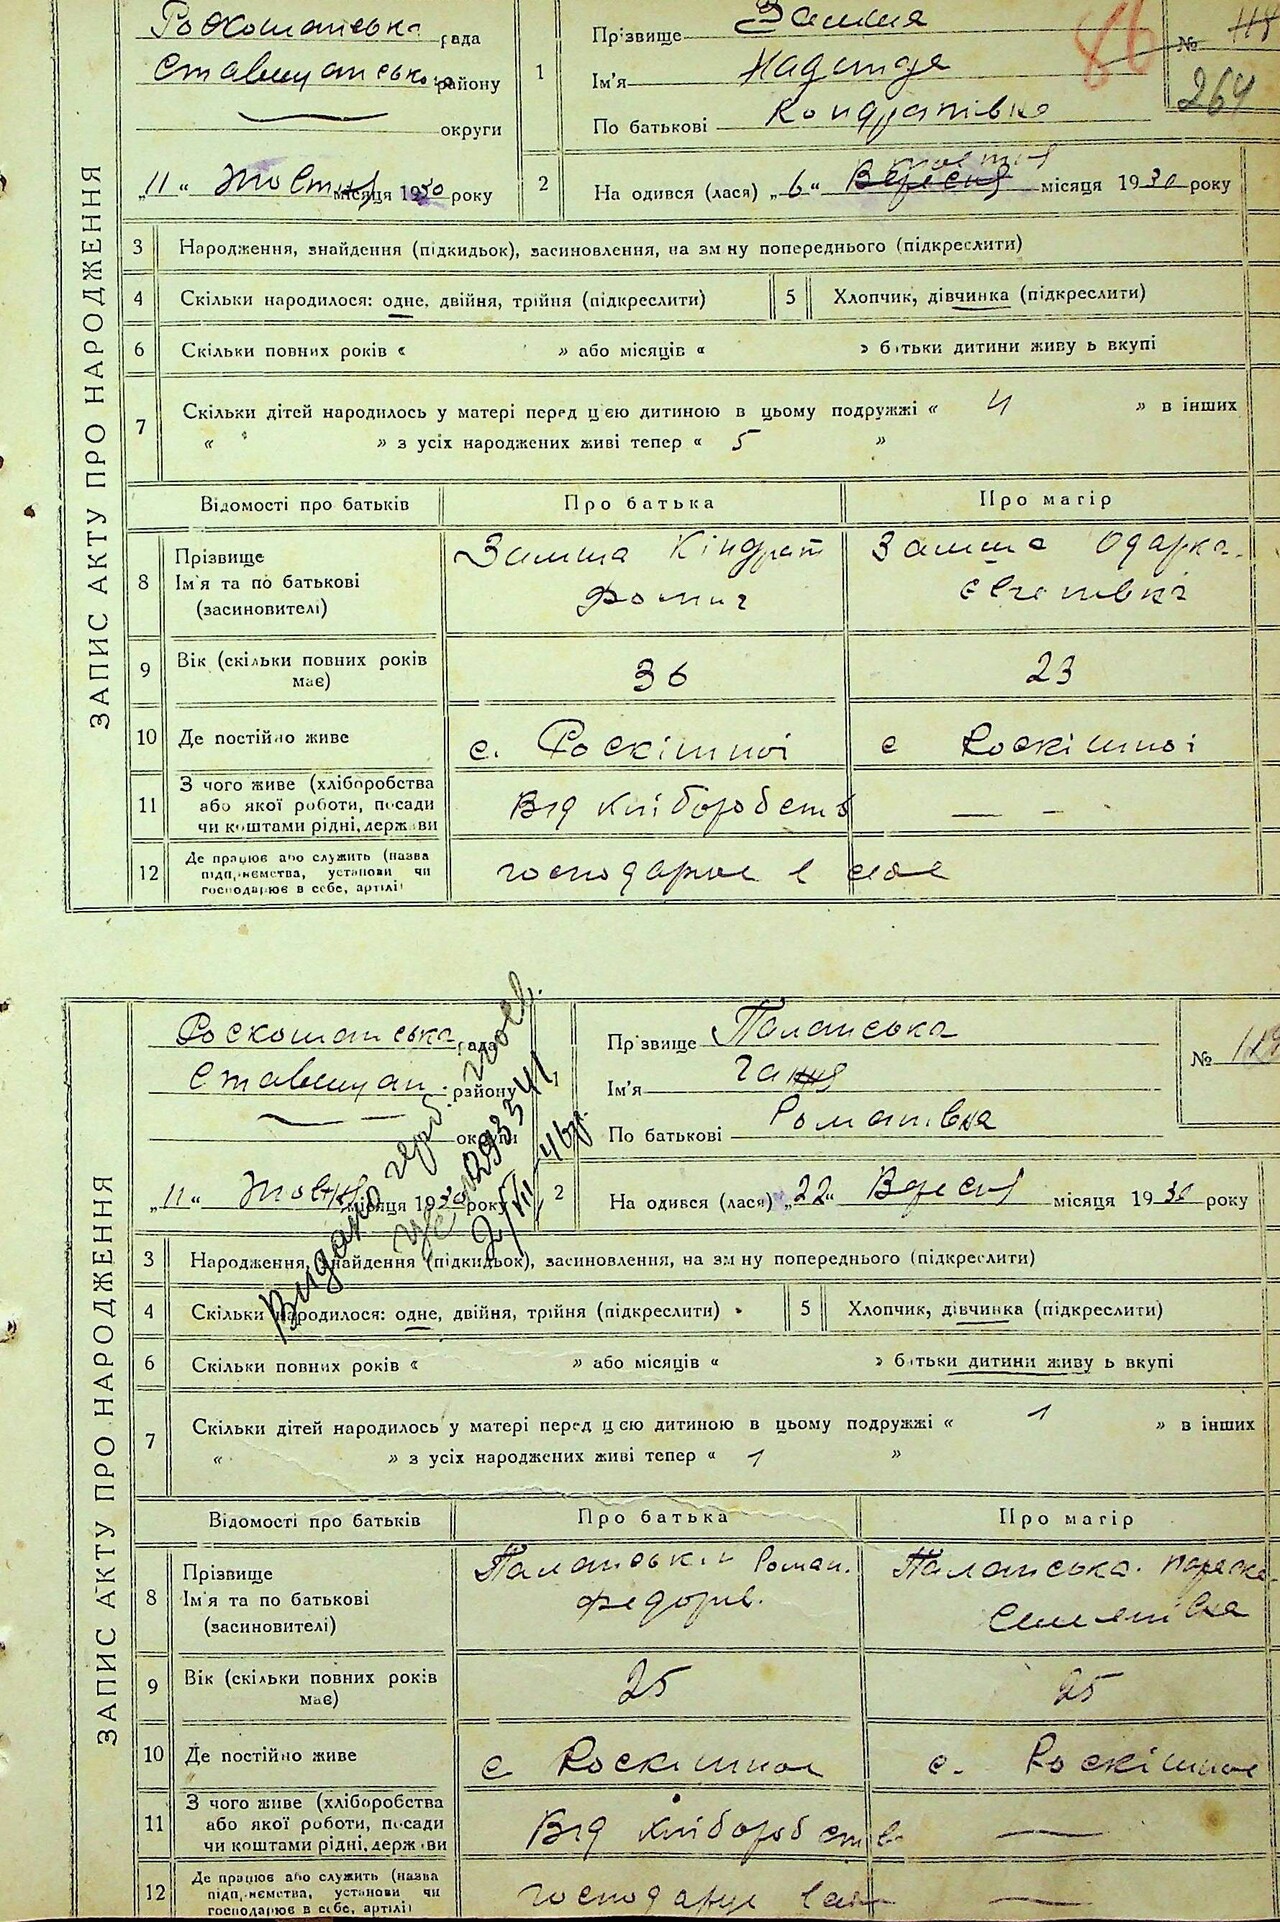 ЗАПИС АКТУ ПРО НАРОДЖЕННЯ
Роскошанська рада
Ставищанського району
округи
„11“ Жовтня місяця 1930 року
1
Прізвище Замша
Ім'я Надежда
По батькові Кондратівна
86
№ 118
264
2
На одився (лася) „6“ Вересня жовтня місяця 1930 року
3 Народження, знайдення (підкидьок), засиновлення, на зм ну попереднього (підкреслити)
4 Скільки народилося: одне, двійня, трійня (підкреслити)
5 Хлопчик, дівчинка (підкреслити)
6 Скільки повних років « » або місяців « » б тьки дитини живу ь вкупі
7 Скільки дітей народилось у матері перед цією дитиною в цьому подружжі « 4 » в інших
« » з усіх народжених живі тепер « 5 »
Відомості про батьків Про батька Про матір
8 Прізвище
Ім'я та по батькові
(засиновителі)
Замша Кіндрат
Фомич
Замша Одарка
9 Вік (скільки повних років
має)
36 23
10 Де постійно живе с. Роскішної с Роскішної
11 З чого живе (хліборобства
або якої роботи, посади
чи коштами рідні, держ ви
Від хліборобств — -
12 Де працює або служить (назва
підп, иємства, установи чи
господарює в себе, артілі)
господарює в себе
ЗАПИС АКТУ ПРО НАРОДЖЕННЯ
Роскошанська рада
Ставищан. району
округи
„11“ Жовтня місяця 1930 року
Видано
293541
1
Пр звище Паланська
Ім'я Ганя
По батькові Романівна
№
2
На одився (лася) „22“ Вересня місяця 1930 року
3 Народження, знайдення (підкидьок), засиновлення, на зм ну попереднього (підкреслити)
4 Скільки народилося: одне, двійня, трійня (підкреслити)
5 Хлопчик, дівчинка (підкреслити)
6 Скільки повних років « » або місяців « » б тьки дитини живу ь вкупі
7 Скільки дітей народилось у матері перед цією дитиною в цьому подружжі « 1 » в інших
« » з усіх народжених живі тепер « 1 »
Відомості про батьків Про батька Про матір
8 Прізвище
Ім'я та по батькові
(засиновителі)
Паланський Роман.
Федорів.
Паланська. Параска
Семенівна
9 Вік (скільки повних років
має)
25 25
10 Де постійно живе с Роскішної с. Роскішної
11 З чого живе (хліборобства
або якої роботи, посади
чи коштами рідні, держ ви
Від хліборобств —
12 Де працює або служить (назва
підп, иємства, установи чи
господарює в себе, артілі)
господарює —